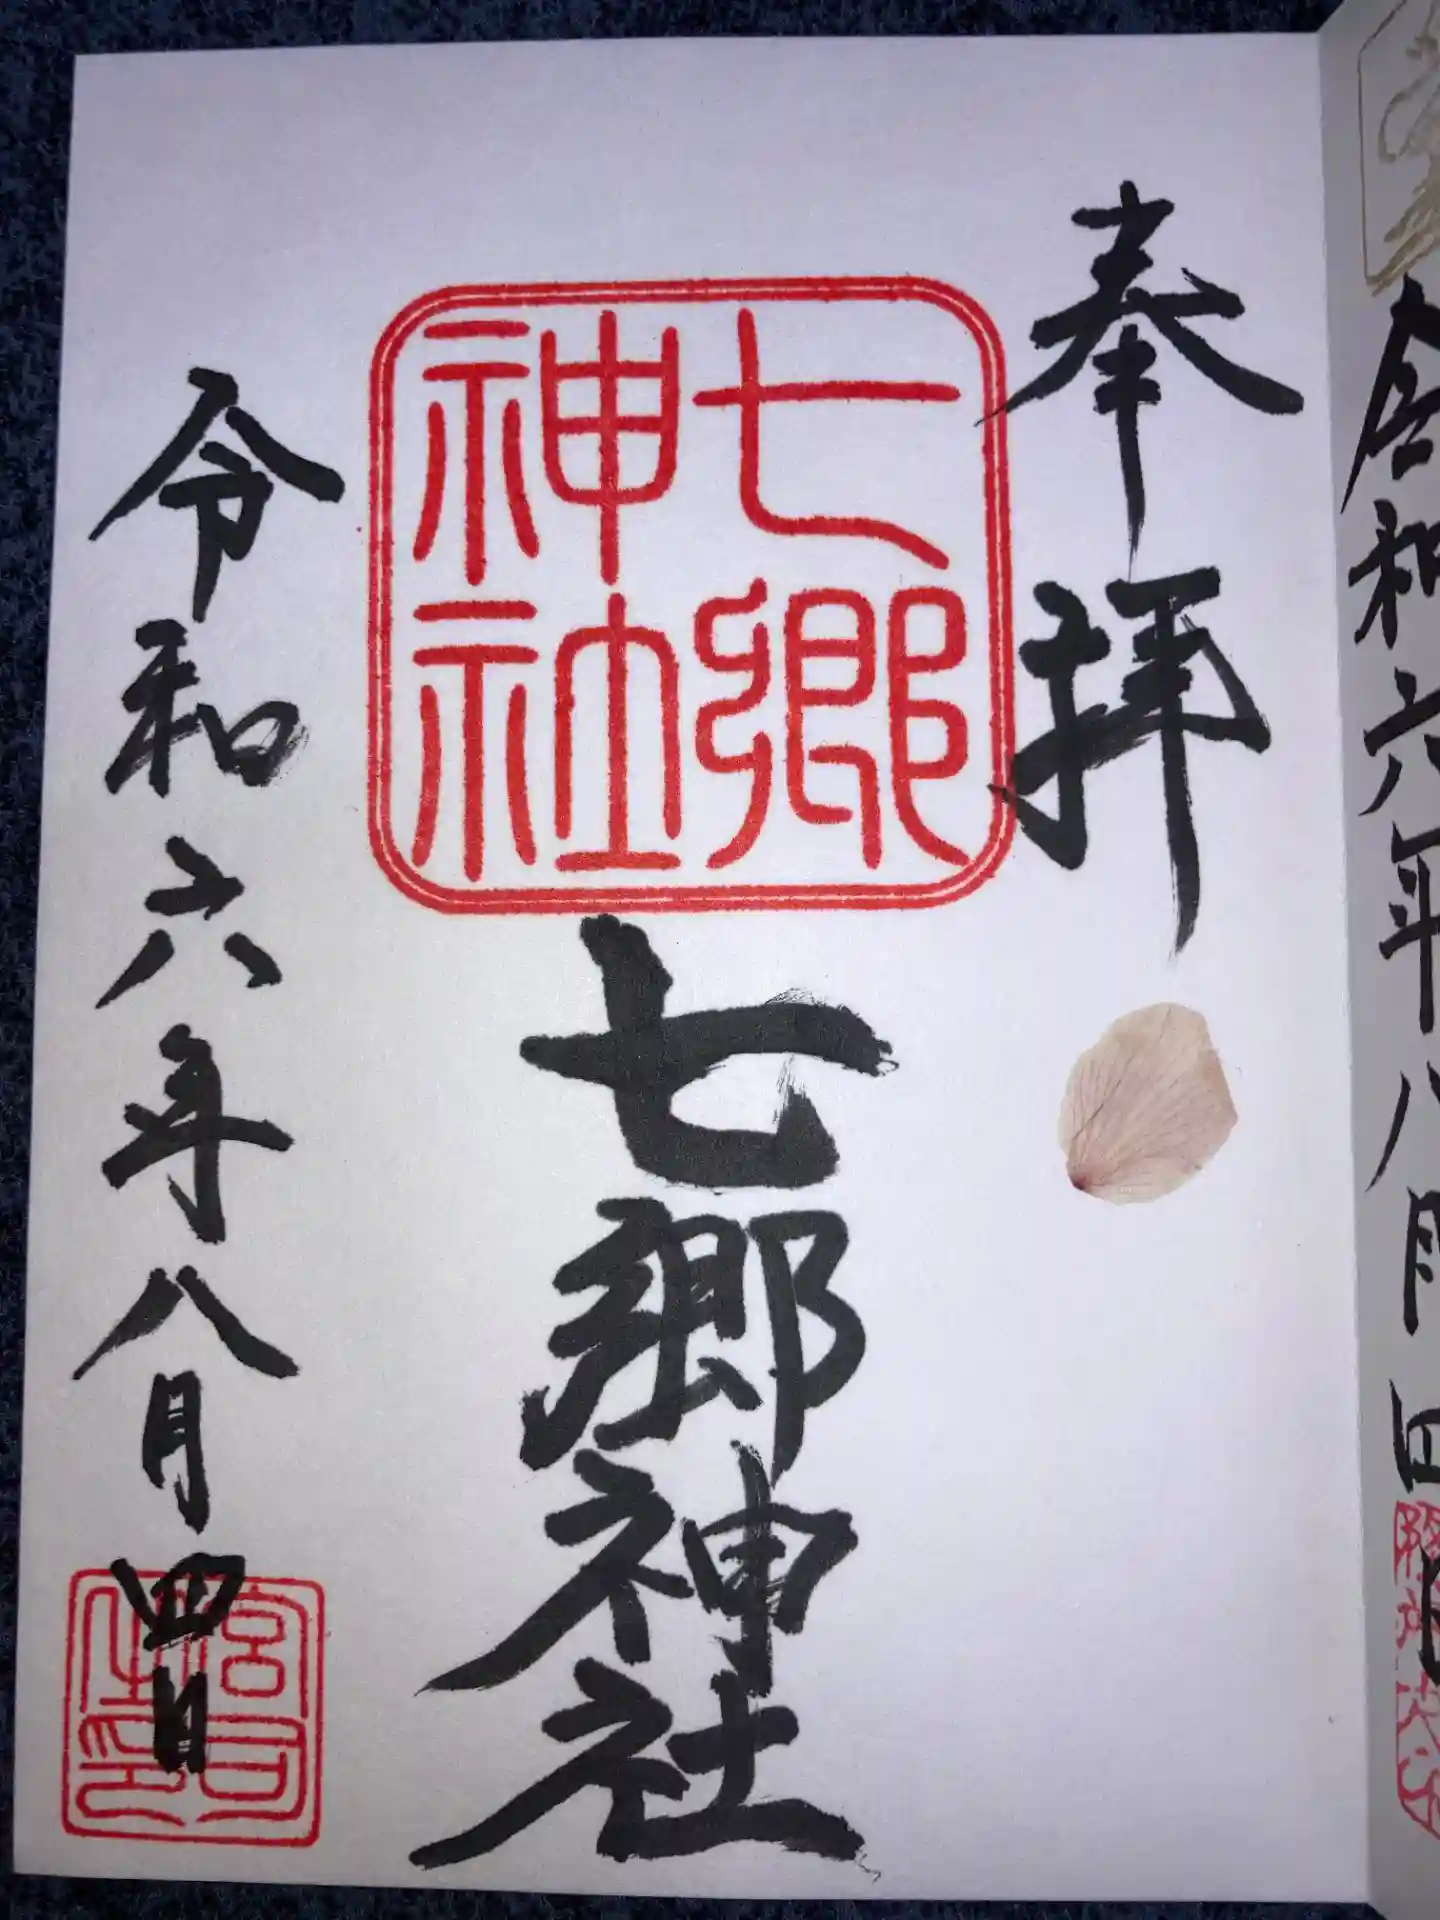 令和六年八月四日
奉拝
七郷
神社
七郷神社
令和六年八月四日
宮司
之印